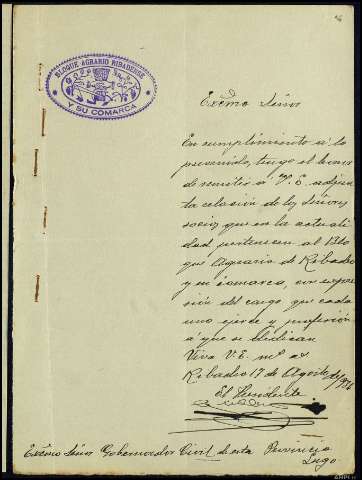 BLOQUE AGRARIO RIBADENSE
Y SU COMARCA
Excmo Señor
En cumplimiento á lo
prevenido, tengo el honor
de remitir a V. E. adjun
ta relación de los Señores
socios que en la actuali
dad pertenecen al Blo
que Agrario de Ribadeo
y su comarca, con expre
sión del cargo que cada
uno ejerce y profesión
á que se dedican
Viva V. E. ms as
Ribadeo 17 de Agosto
El Presidente
Excmo Señor Gobernador Civil de esta Provincia
Lugo